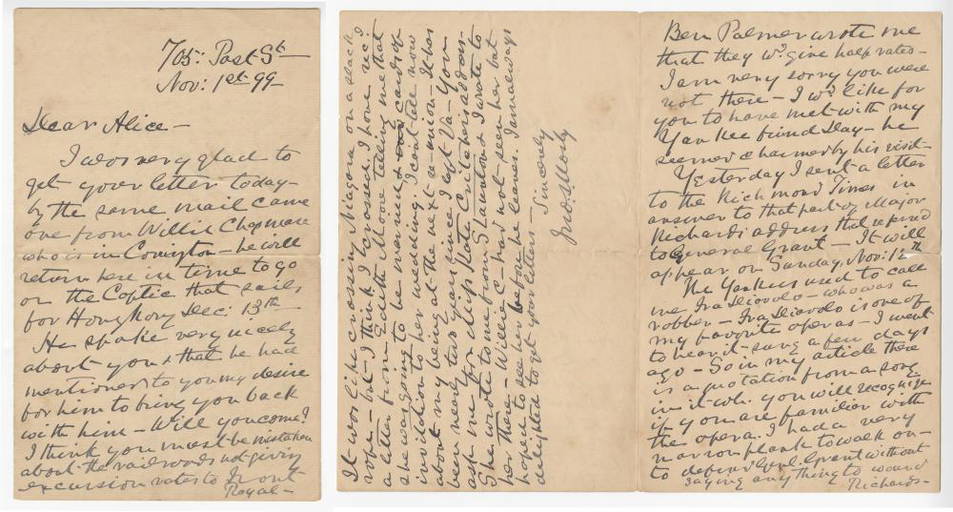 705: Post St
Nov: 1st 99
Dear Alice—
I was very glad to
get your letter today—
by the same mail came
one from Willie Chapman
who is in Covington—he will
return here in time to go
on the Coptic that sails
for Hong Kong Dec: 13th
He spoke very nicely
about you & that he had
mentioned to you my desire
for him to bring you back
with him—Will you come?
I think you must be mistaken
about the railroads not giving
excursion rates to Front
Royal—
Ben Palmer wrote me
that they wd. give half rates—
I am very sorry you were
not there—I wd. like for
you to have met with my
Yankee friend Day—he
seemed charmed by his visit—
Yesterday I sent a letter
to the Richmond Times in
answer to that part of Major
Richards address that referred
to General Grant—It will
appear on Sunday, Nov: 12th
The Yankees used to call
me Fra Diavolo—who was a
robber—Fra Diavolo is one of
my favorite operas—I went
to hear it sung a few days
ago—So in my article there
is a quotation from a song
in it wh. you will recognize
if you are familiar with
the opera. I had a very
narrow plank to walk on—
to defend Genl. Grant without
saying anything to wound
Richards—
It was like crossing Niagara on a slack
rope—but I think I crossed. I have recd
a letter from Edith Mone telling me that
she was going to be married & card of
invitation to her wedding. I can't tell now
about my being at the next re-union—It has
been nearly two years since I left Va—You
ask me for Miss Kate Critcher's address—
She wrote to me from Staunton & I wrote to
her there—Willie C— had not seen her but
hoped to see her before he leaves. I am always
delighted to get your letters—
Sincerely
Jno. S. Mosby